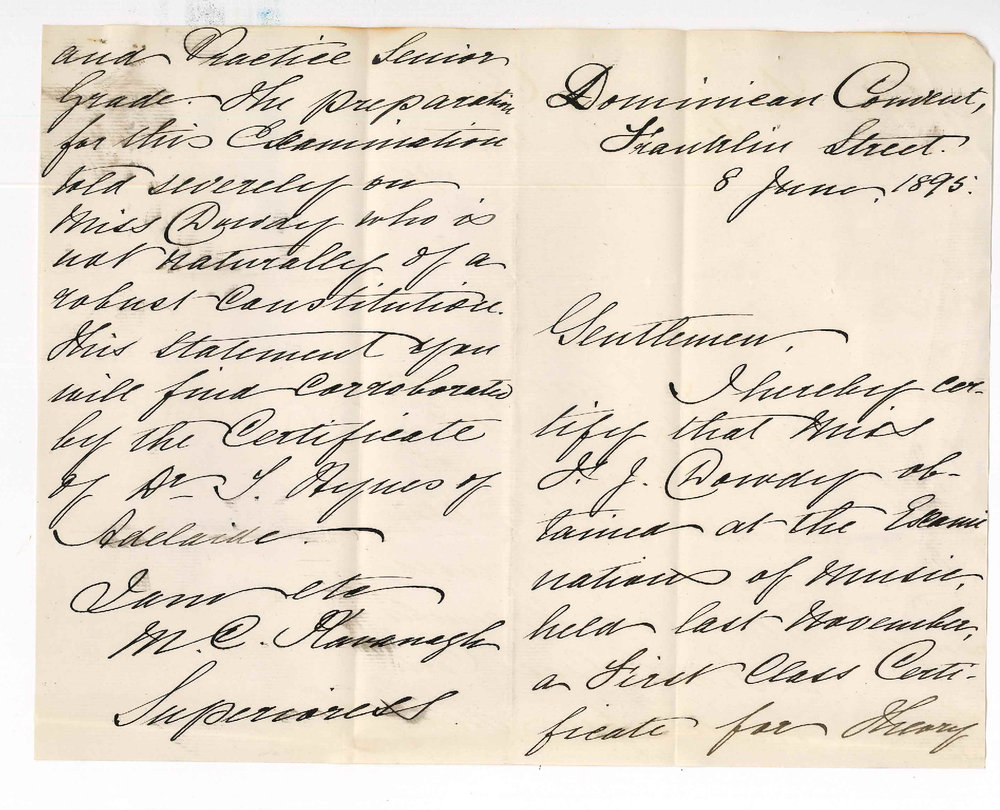 Dominican Convent,
Franklin Street.
8 June, 1895.
Gentlemen,
I hereby cer-
tify that Miss
F. J. Dowdy ob-
tained at the Exami
nations of Music,
held last November,
a First Class Certi-
ficate for Theory
and Practice Senior
Grade. The preparation
for this Examination
told severely on
Miss Dowdy who is
not naturally of a
robust constitution.
This statement you
will find corroborated
by the Certificate
of Dr S. Hynes of
Adelaide.
I am etc
M. C. Kavanagh
Superioress